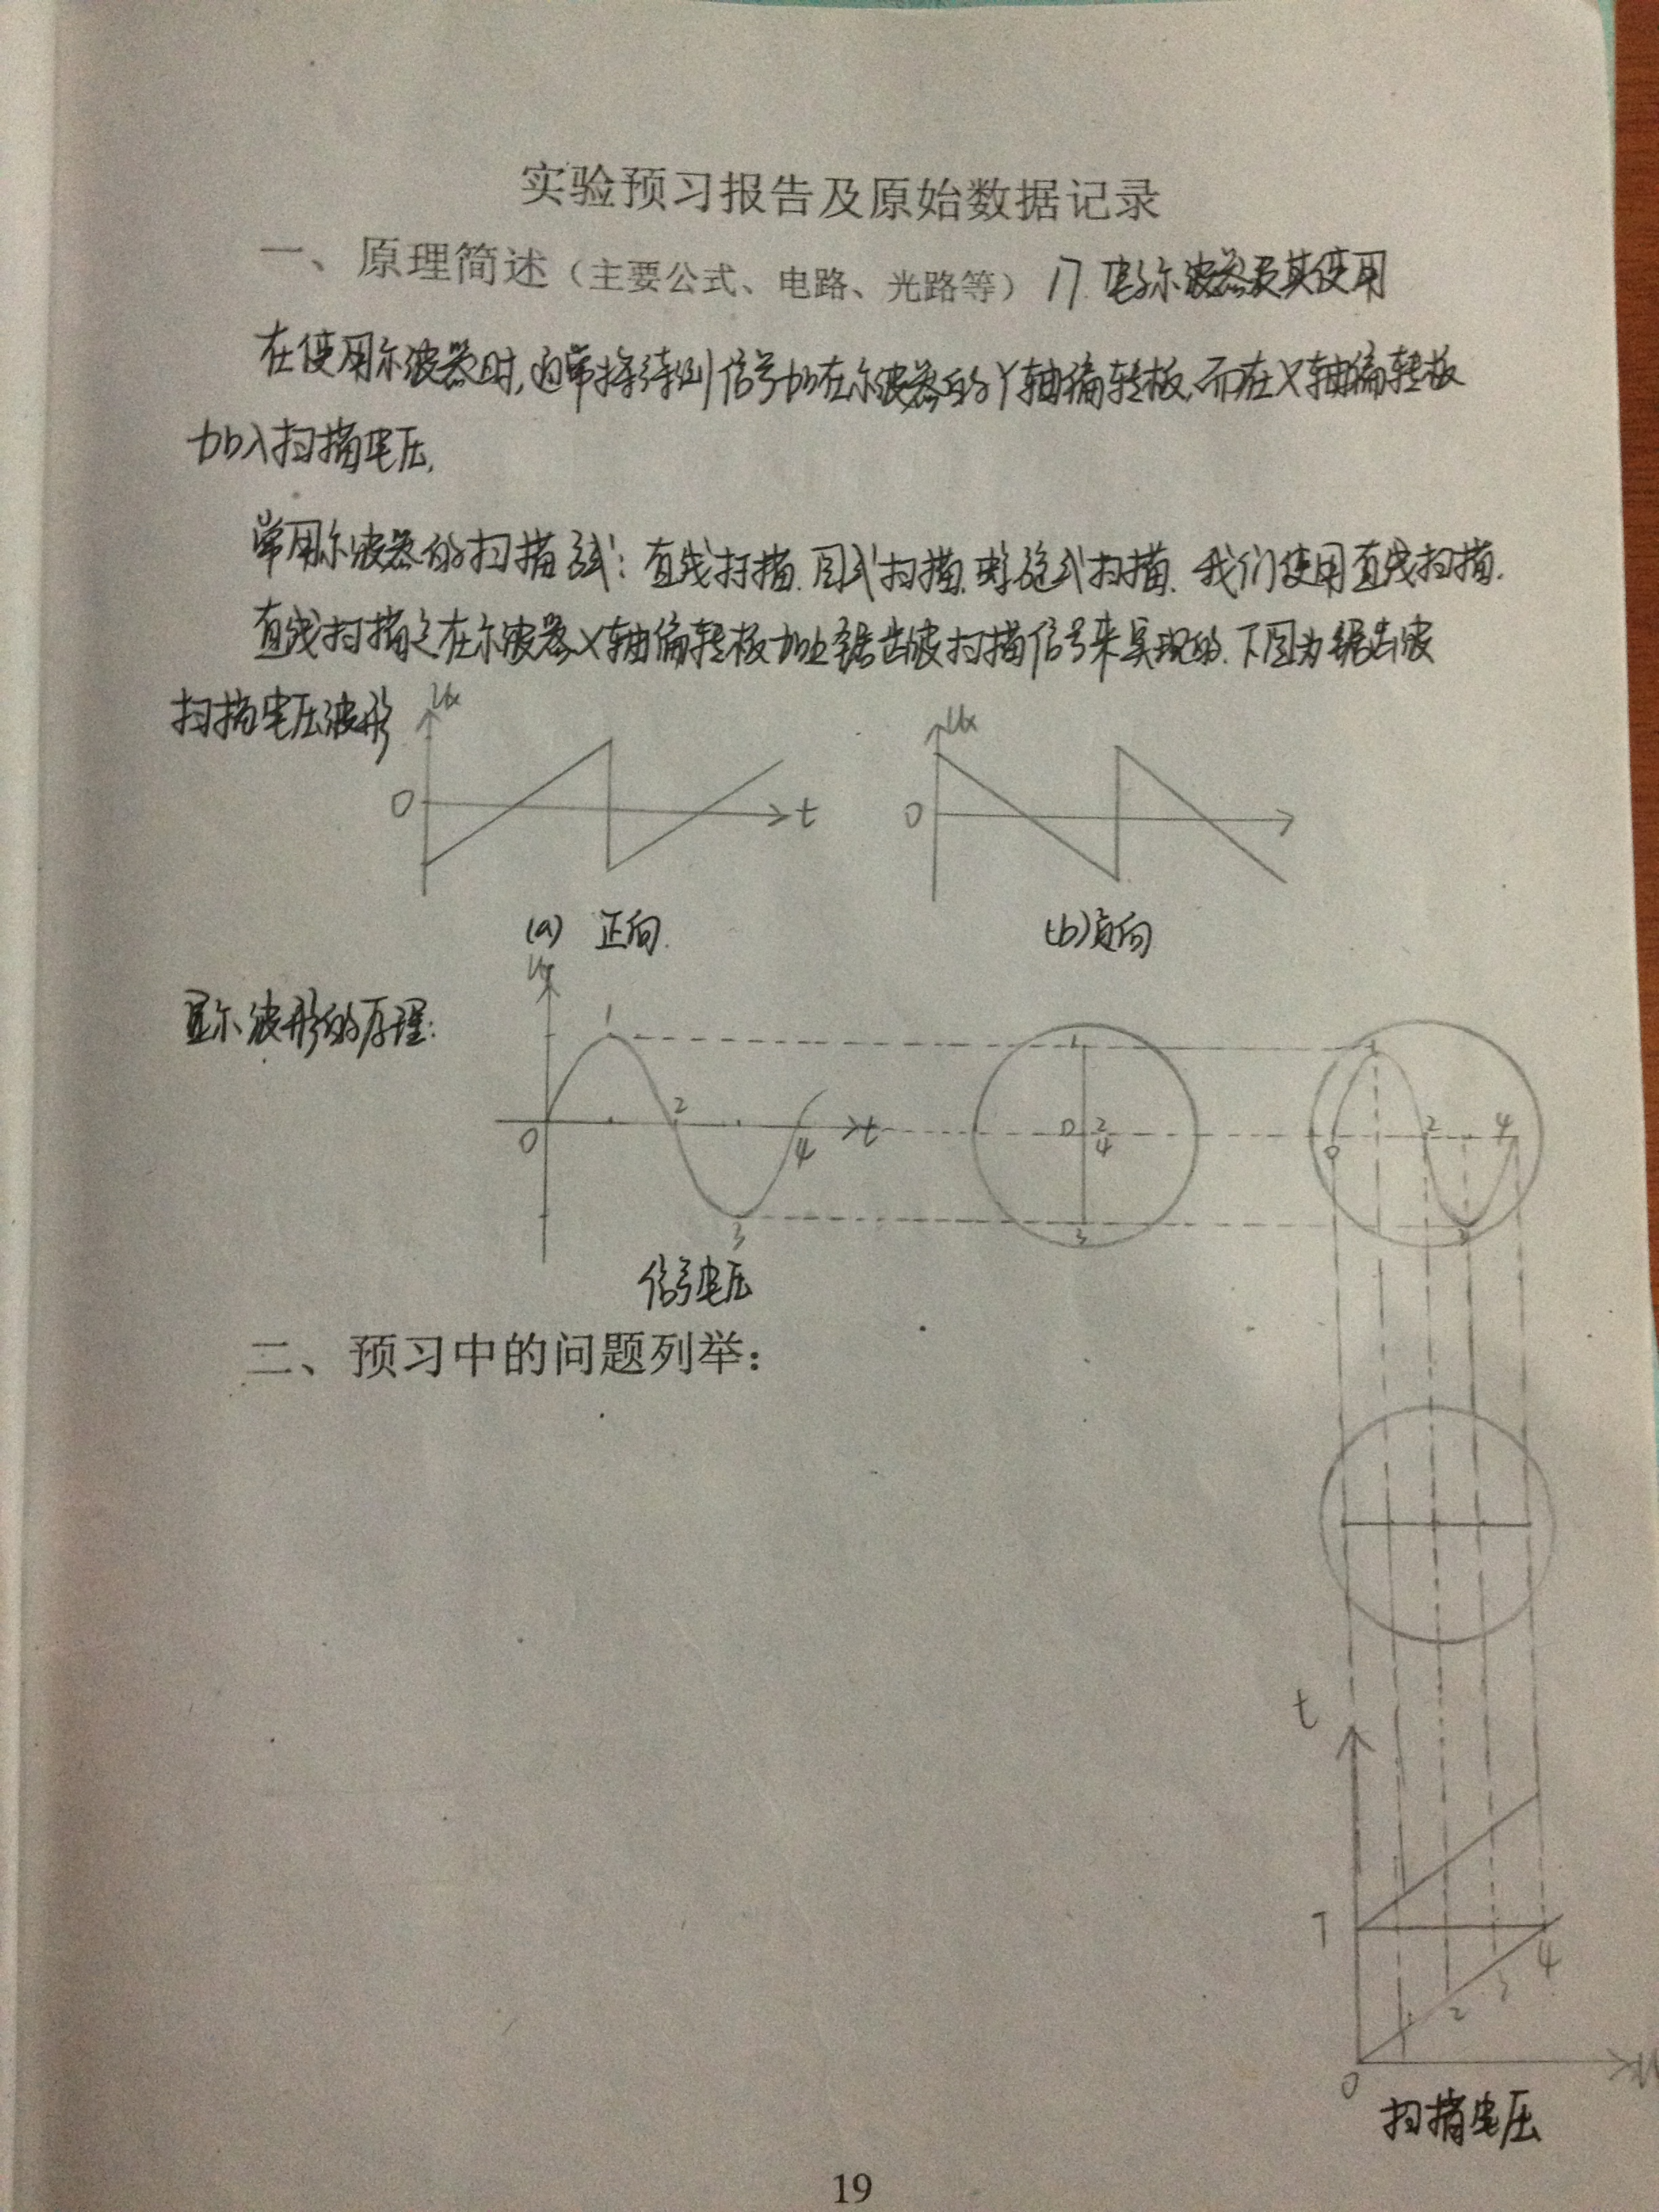 实验预习报告及原始数据记录
一、原理简述（主要公式、电路、光路等） 17. 电子示波器及其使用
在使用示波器时,通常将待测信号加在示波器的Y轴偏转板,而在X轴偏转板
加入扫描电压.
常用示波器的扫描方式: 直线扫描. 圆式扫描. 螺旋式扫描. 我们使用直线扫描.
直线扫描是在示波器X轴偏转板加上锯齿波扫描信号来实现的. 下图为锯齿波
扫描电压波形
Ux
0
t
Ux
0
(a) 正向.
(b) 负向
显示波形的原理:
Uy
1
2
3
4
0
t
1
0 2
4
3
1
0
2
3
4
信号电压
二、预习中的问题列举：
t
T
1
2
3
4
0
扫描电压
19